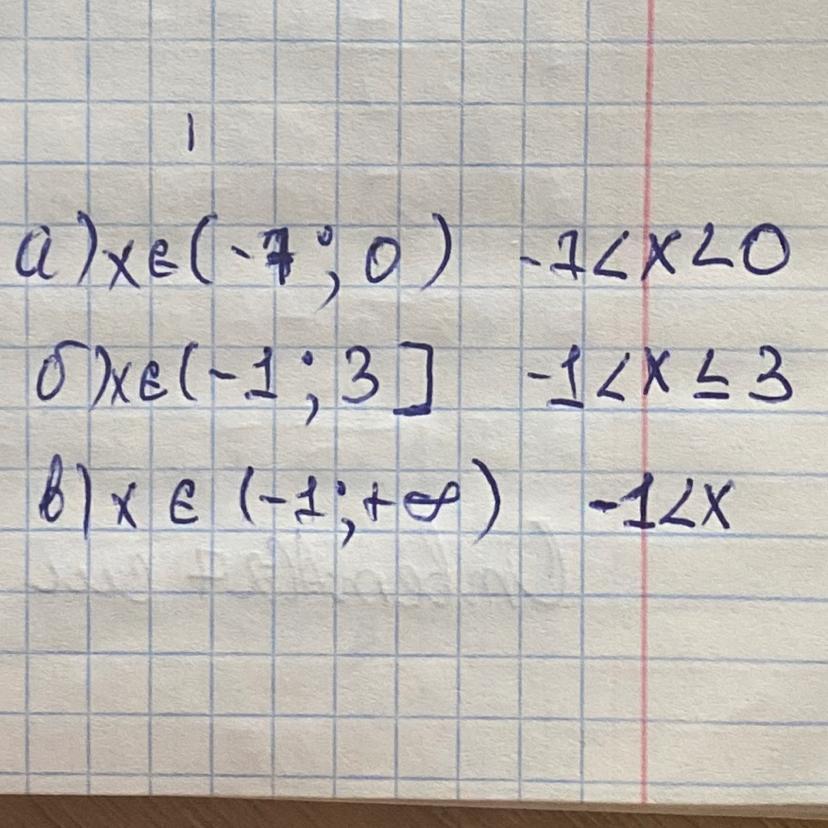 а) x ∈ (-7; 0) -7 < x < 0
б) x ∈ (-1; 3] -1 < x ≤ 3
в) x ∈ (-1; +∞) -1 < x